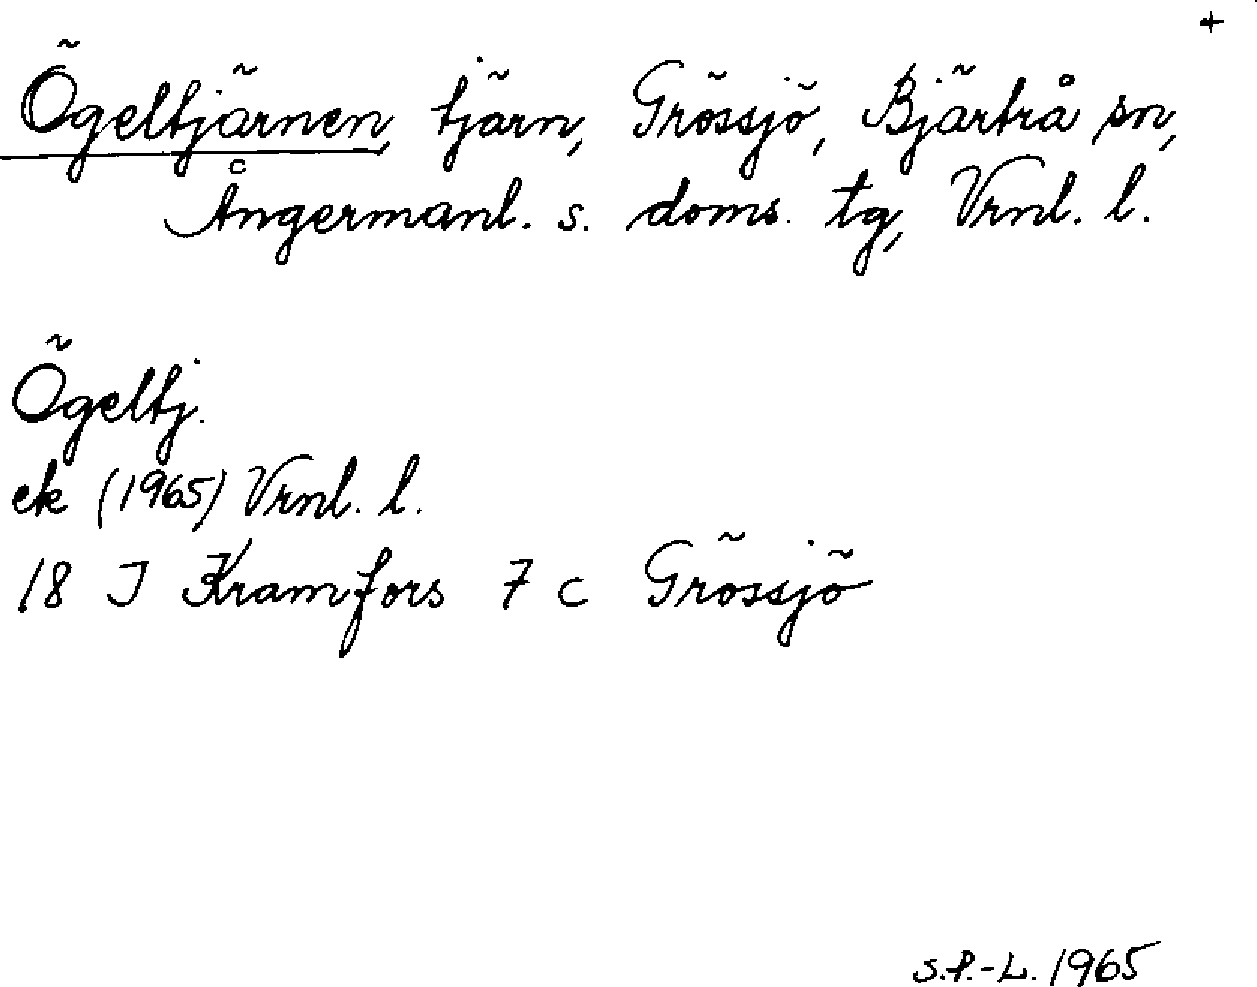 +
Ögeltjärnen, tjärn, Grössjö, Bjärtrå sn,
Ångermanl. s. doms. tg, Vrnl. l.
Ögeltj.
ek (1965) Vrnl. l.
18 J Kramfors 7 c Grössjö
S.P.-L. 1965